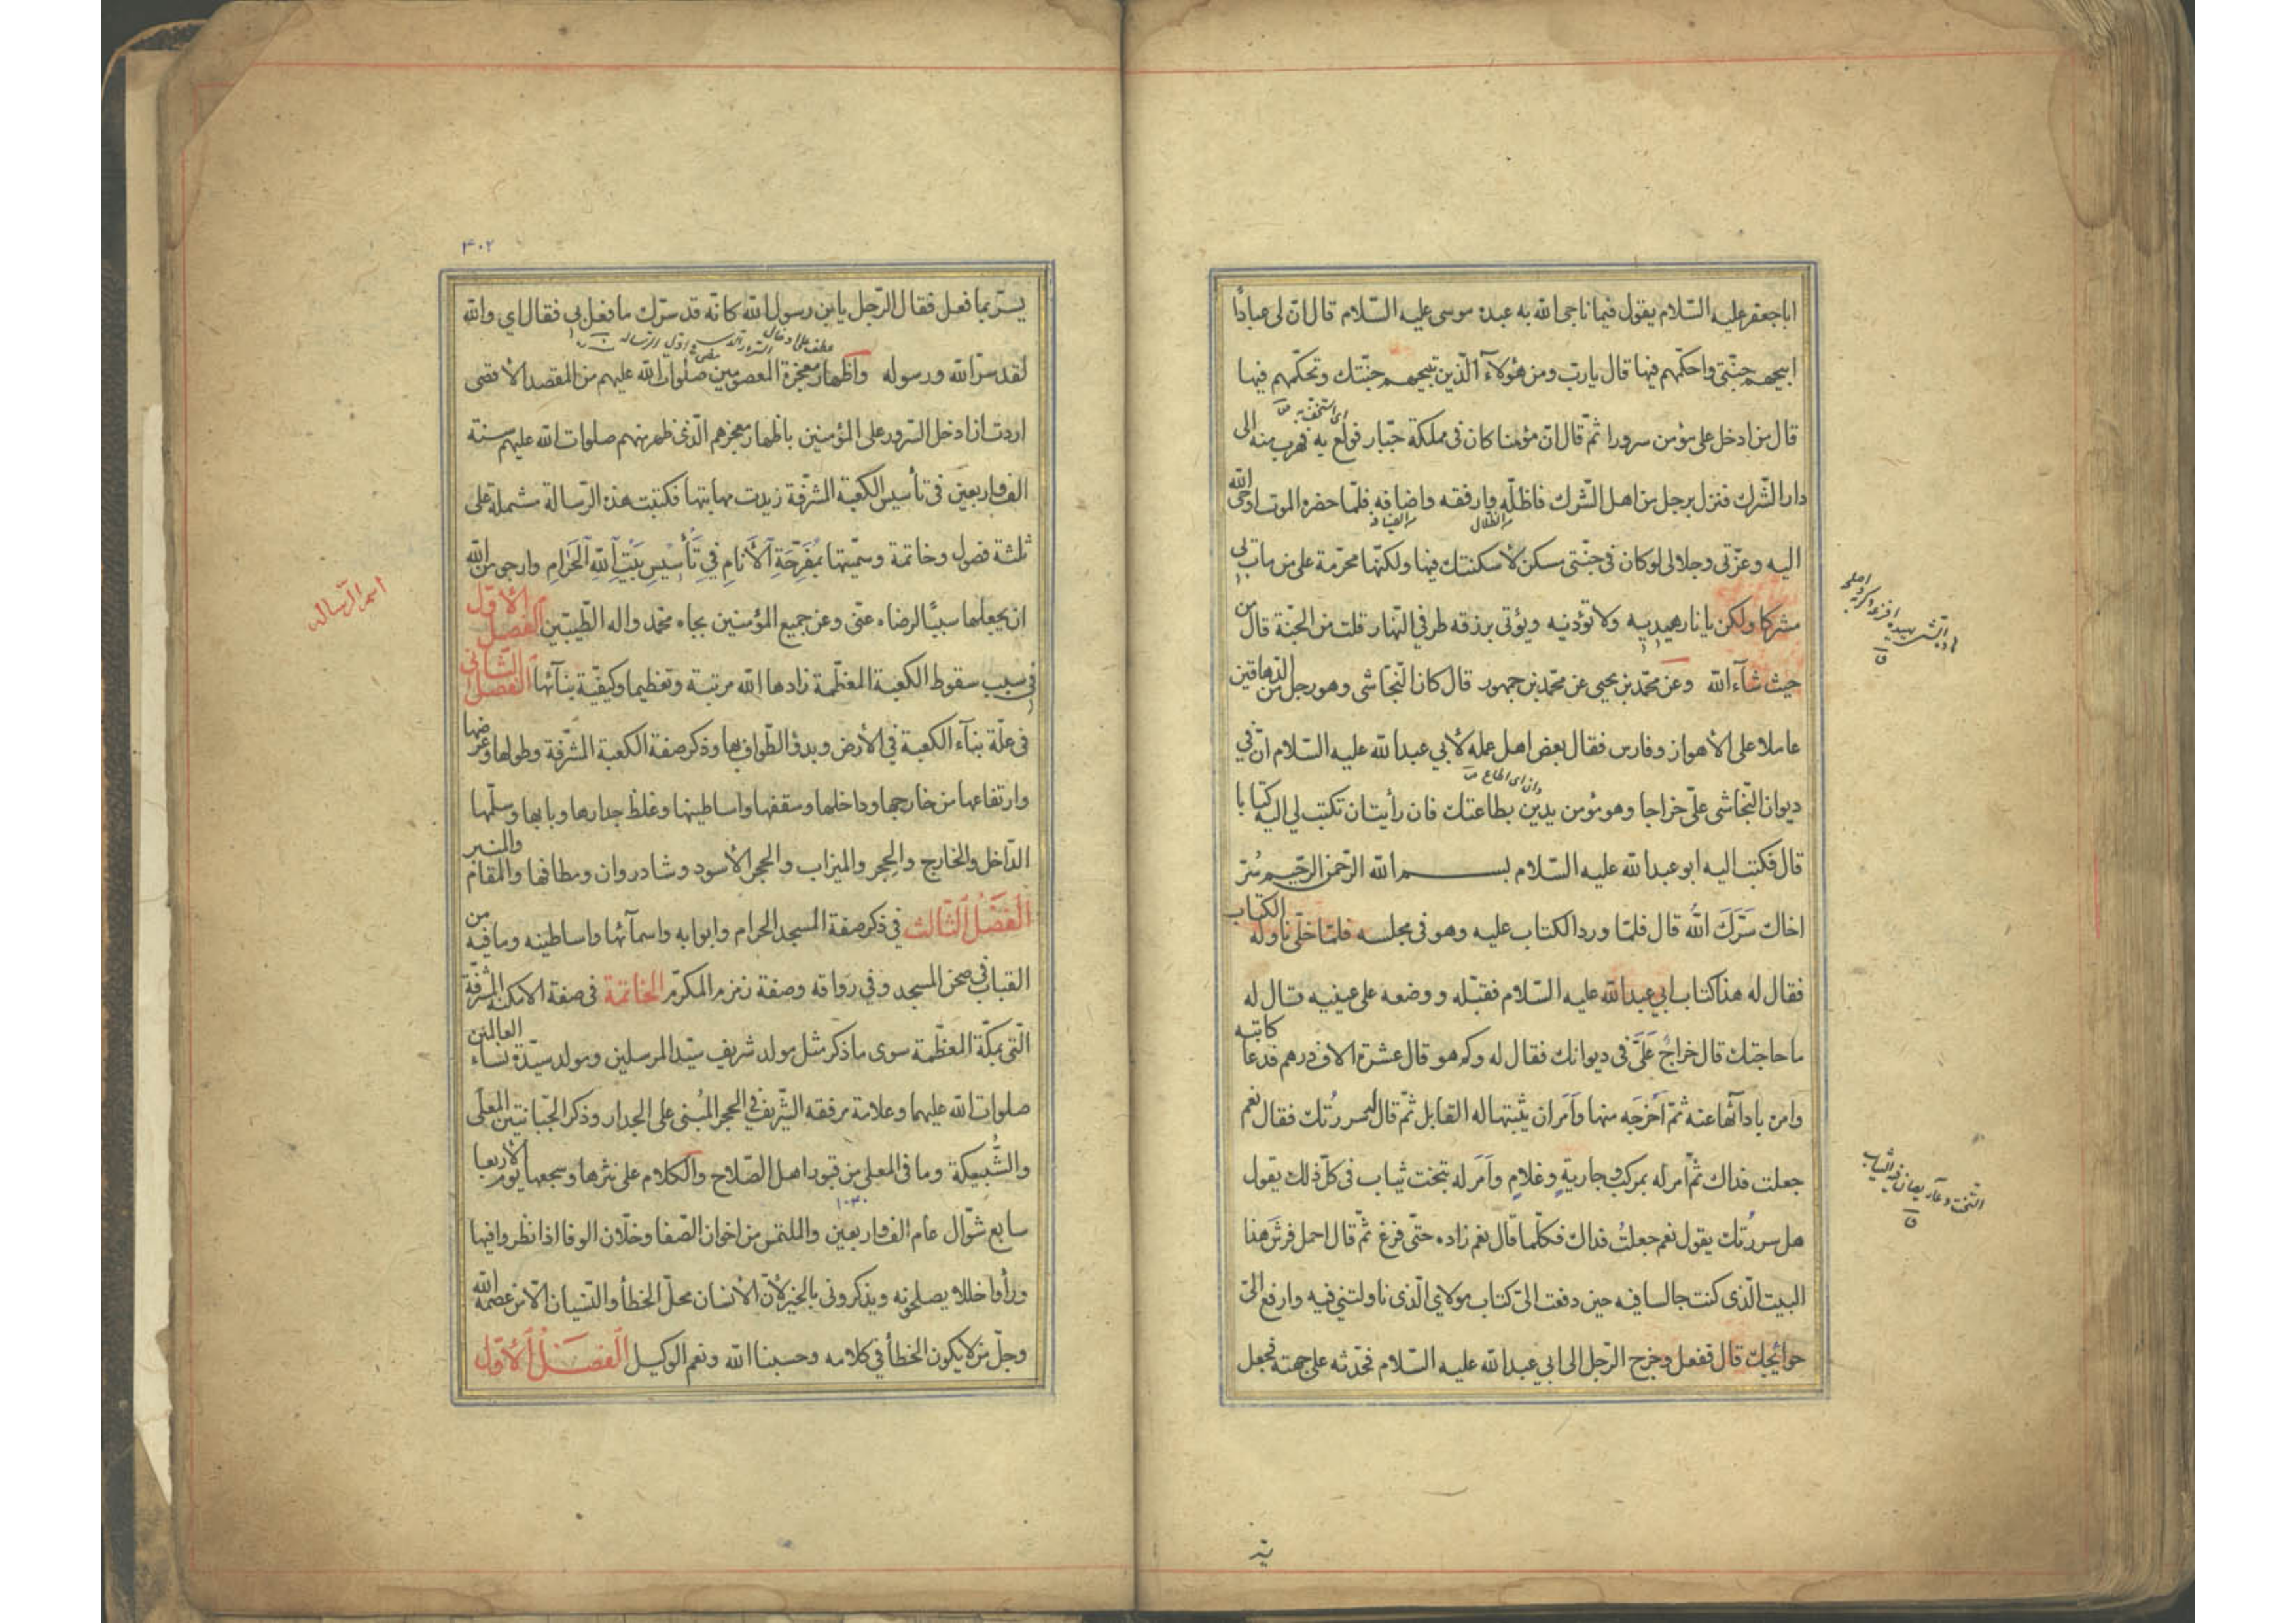 اباجعفر عليه السّلام يقول فيما ناجى الله به عبده موسى عليه السّلام قال انّ لى عبادًا
ابيحهم جنّتى واحكّمهم فيها قال يا ربّ ومن هؤلآء الّذين تبيحهم جنّتك وتحكّمهم فيها
اى استخفّ به ق
قال من ادخل على مؤمن سرورا ثمّ قال انّ مؤمنا كان فى مملكة جبّار فولع به فهرب منه الى
دار الشّرك فنزل برجل من اهل الشّرك فاظلّه وارفقه واضافه فلمّا حضره الموت اوحى الله
من الظلال من الضيافة
اليه وعزّتى وجلالى لو كان فى جنّتى مسكن لأسكنتك فيها ولكنّها محرّمة على من مات بى
مشركا ولكن يا نار هيديه ولا تؤذيه ويؤتى برزقه طرفي النّهار قلت من الجنّة قال من
حيث شآء الله وعن محمّد بن يحيى عن محمّد بن جمهور قال كان النّجاشى وهو رجل من الدّهاقين
عاملا على الأهواز وفارس فقال بعض اهل عمله لأبي عبد الله عليه السّلام انّ في
دان اى اطاع ص
ديوان النّجاشى علىّ خراجا وهو مؤمن يدين بطاعتك فان رأيت ان تكتب لي اليه كتابا
قال فكتب اليه ابو عبد الله عليه السّلام بسم الله الرّحمن الرّحيم سُرّ
اخاك سَرَّكَ اللهُ قال فلمّا ورد الكتاب عليه وهو فى مجلسه فلمّا خلّى ناوله الكتاب
فقال له هذا كتاب ابي عبد الله عليه السّلام فقبّله ووضعه على عينيه وقال له
ما حاجتك قال خراجٌ عَلَىَّ فى ديوانك فقال له وكم هو قال عشرة الاف درهم فدعا كاتبه
وامره بادآئها عنه ثمّ اَخرَجَه منها وَاَمَر ان يثبتها له القابل ثمّ قال له سررُتك فقال نعم
جعلت فداك ثمّ اَمر له بمركب وجاريةٍ وغلامٍ وَاَمَر له بتخت ثياب فى كلّ ذلك يقول
هل سررُتك يقول نعم جعلتُ فداك فكلّما قال نعم زاده حتّى فرغ ثمّ قال احمل فرش هذا
البيت الّذى كنت جالسا فيه حين دفعت الىّ كتاب مولاي الّذى ناولتني فيه وارفع الىّ
حوائجك قال ففعل وخرج الرّجل الى ابي عبد الله عليه السّلام فحدّثه على جهته فجعل
التخت وعاء يصان فيه الثياب
ق
٤٠٢
يسرّ بما فعل فقال الرّجل يا بن رسول الله كانّه قد سرّك ما فعل بي فقال اي والله
لقد سرّ الله ورسوله واظهار معجزة المعصومين صلوات الله عليهم من المقصد الأقصى
اردت ان ادخل السّرور على المؤمنين باظهار معجزهم الّذى ظهر منهم صلوات الله عليهم سنة
الف واربعين فى تأسيس الكعبة المشرّفة زيدت مهابتها فكتبت هذه الرّسالة مشتملة على
ثلثة فصول وخاتمة وسمّيتها بمُفَرِّحَةِ الْاَنامِ فِي تَأْسِيْسِ بَيْتِ اللهِ الْحَرامِ وارجو من الله
اسم الرّسالة
ان يجعلها سببًا لرضاه عنّى وعن جميع المؤمنين بجاه محمّد واله الطّيّبين الفصل الاوّل
فى سبب سقوط الكعبة المعظّمة زادها الله مرتبة وتعظيما وكيفيّة بنآئها الفصل الثّانى
فى علّة بنآء الكعبة في الأرض وبدؤ الطّواف بها وذكر صفة الكعبة المشرّفة وطولها وعرضها
وارتفاعها من خارجها وداخلها وسقفها واساطينها وغلظ جدارها وبابها وسلّمها
الدّاخل والخارج والحِجر والميزاب والحجر الأسود وشادروان ومطافها والمقام والمنبر
الْفَصْلُ الثّالث في ذكر صفة المسجد الحرام وابوابه واسمآئها واساطينه وما فيه من
القباب فى صحن المسجد وفي رواقه وصفة زمزم المكرّم الخاتمة فى صفة الامكنة المشرّفة
الّتى بمكّة المعظّمة سوى ما ذكر مثل مولد شريف سيّد المرسلين ومولد سيّدة نساء العالمين
صلوات الله عليهما وعلامة مرفقه الشّريف في الحجر المُبنى على الجدار وذكر الجبّانتين المعلّى
والشُّبيكة وما فى المعلى من قبور اهل الصّلاح والكلام على نثرها وسجعها يوم الاربعا
١٠٤٠
سابع شوّال عام الف واربعين والملتمس من اخوان الصّفا وخلّان الوفا اذا نظروا فيها
ورأوا خللا يصلحونه ويذكرونى بالخير لأنّ الأنسان محلّ الخطأ والنّسيان الّا من عصمه الله
وجلّ من لا يكون الخطأ في كلامه وحسبنا الله ونعم الوكيل الْفَصْلُ الْاَوّل